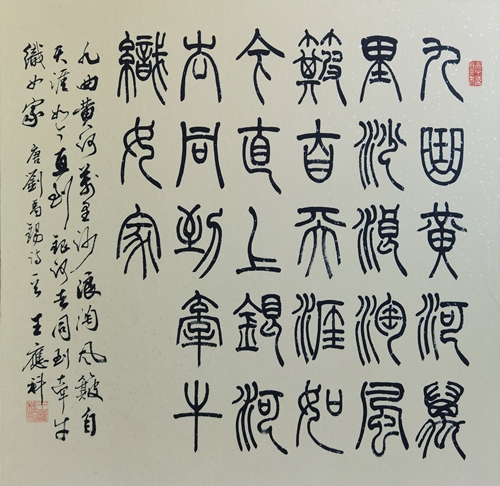 九曲黄河萬
里沙浪淘風
簸自天涯如
今直上銀河
去同到牽牛
織女家
九曲黄河萬里沙浪淘风簸自
天涯如今直到銀河去同到牽牛
織女家 唐劉禹錫詩一首 王應科